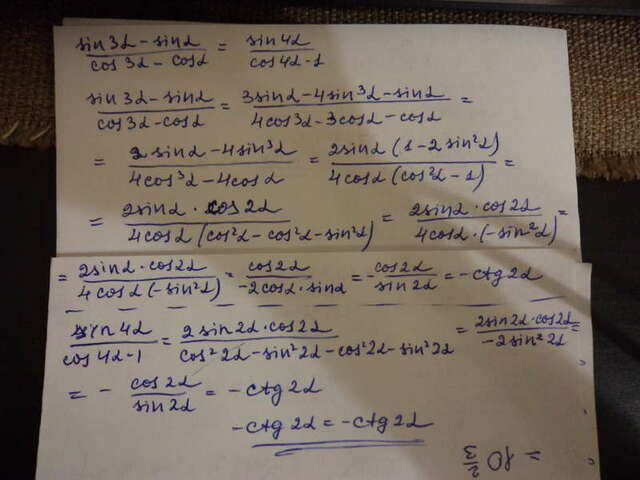 (sin 3α - sin α)/(cos 3α - cos α) = (sin 4α)/(cos 4α - 1)
(sin 3α - sin α)/(cos 3α - cos α) = (3 sin α - 4 sin³α - sin α)/(4 cos³α - 3 cos α - cos α) =
= (2 sin α - 4 sin³α)/(4 cos³α - 4 cos α) = (2 sin α (1 - 2 sin²α))/(4 cos α (cos²α - 1)) =
= (2 sin α · cos 2α)/(4 cos α (cos²α - cos²α - sin²α)) = (2 sin α · cos 2α)/(4 cos α · (-sin²α)) =
= (2 sin α · cos 2α)/(4 cos α (-sin²α)) = (cos 2α)/(-2 cos α · sin α) = -(cos 2α)/(sin 2α) = -ctg 2α
(sin 4α)/(cos 4α - 1) = (2 sin 2α · cos 2α)/(cos² 2α - sin² 2α - cos² 2α - sin² 2α) = (2 sin 2α · cos 2α)/(-2 sin² 2α) =
= - (cos 2α)/(sin 2α) = -ctg 2α
-ctg 2α = -ctg 2α
= 10 2/3